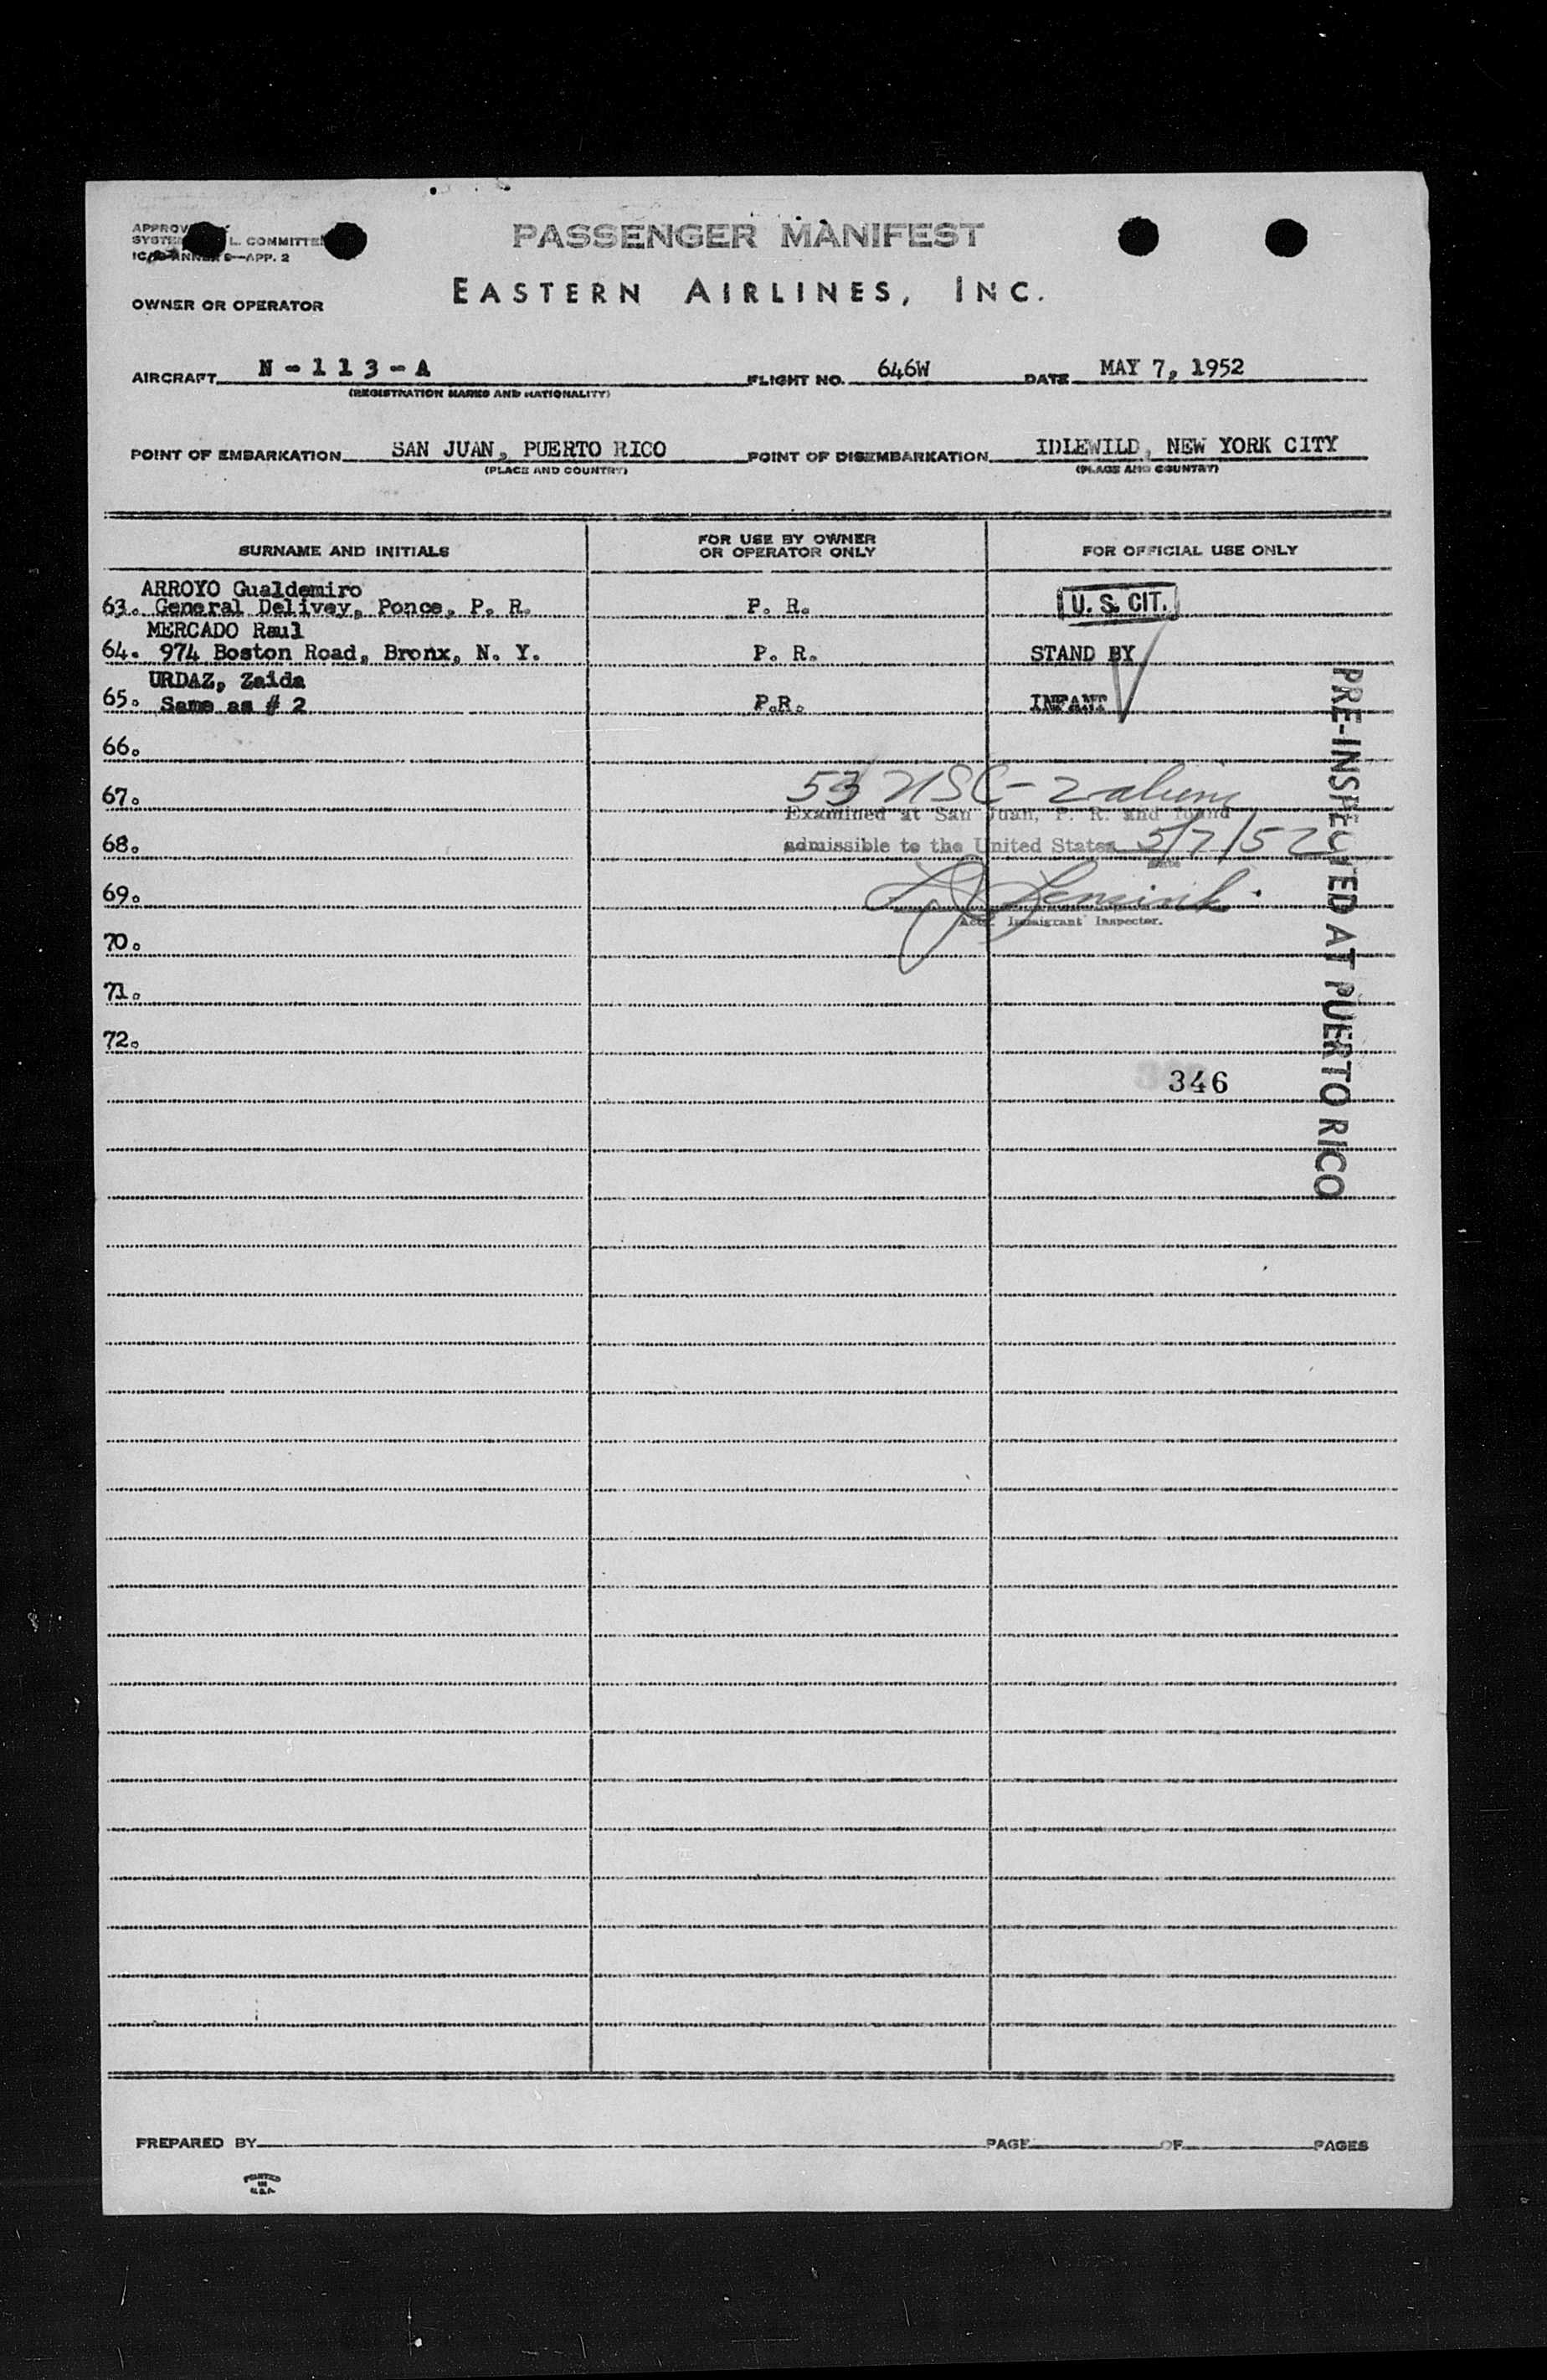 PASSENGER MANIFEST
L. COMMITTEE
APP. 2
EASTERN AIRLINES, INC.
OWNER OR OPERATOR
AIRCRAFT N-113-A FLIGHT NO. 646W DATE MAY 7, 1952
(REGISTRATION MARKS AND NATIONALITY)
POINT OF EMBARKATION SAN JUAN, PUERTO RICO POINT OF DISEMBARKATION IDLEWILD, NEW YORK CITY
(PLACE AND COUNTRY) (PLACE AND COUNTRY)
SURNAME AND INITIALS FOR USE BY OWNER OR OPERATOR ONLY FOR OFFICIAL USE ONLY
ARROYO Gualdemiro
63. General Delivey, Ponce, P. R. P. R. U. S. CIT.
MERCADO Raul
64. 974 Boston Road, Bronx, N. Y. P. R. STAND BY
URDAZ, Zaida
65. Same as # 2 P.R. INFANT
66.
53 USC - 2 aliens
67.
Examined at San Juan, P. R. and found
68. admissible to the United States 5/7/52
Date
69.
Immigrant Inspector.
70.
71.
72.
346
PRE-INSPECTED AT PUERTO RICO
PREPARED BY PAGE OF PAGES
PRINTED
IN
U.S.A.